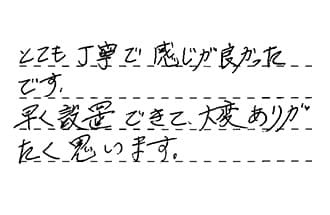 とても丁寧で感じが良かった
です.
早く設置できて、大変ありが
たく思います。